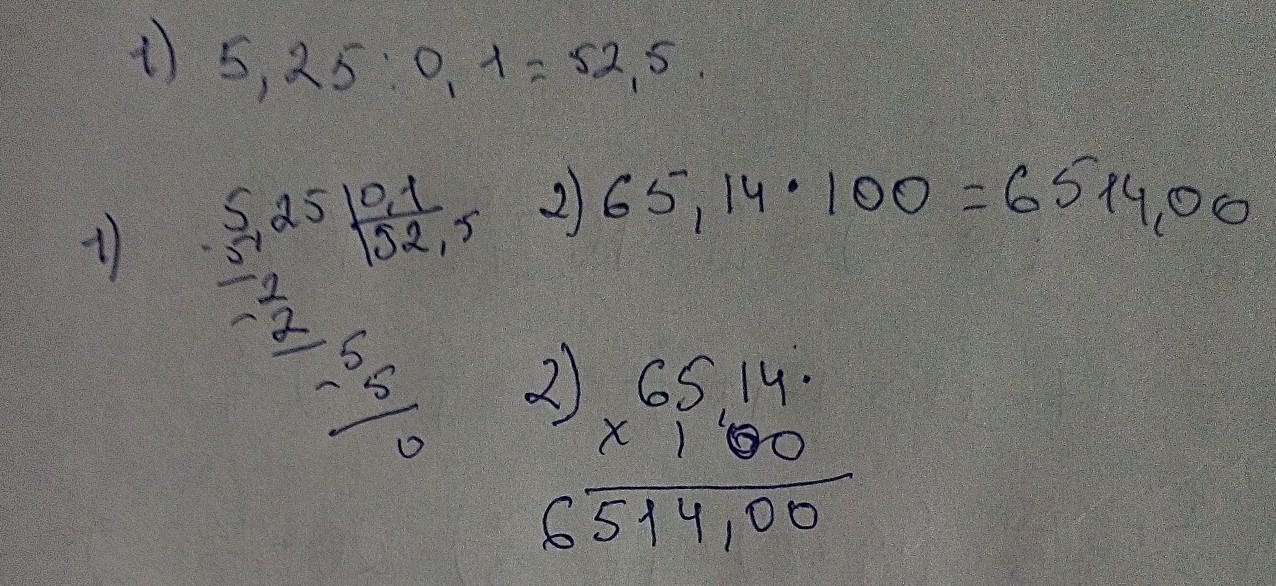 1) 5,25 : 0,1 = 52,5.
1) 5,25 | 0,1
52,5
5
2
- 2
5
- 5
0
2) 65,14 · 100 = 6514,00
2) 65,14.
x 100
6514,00